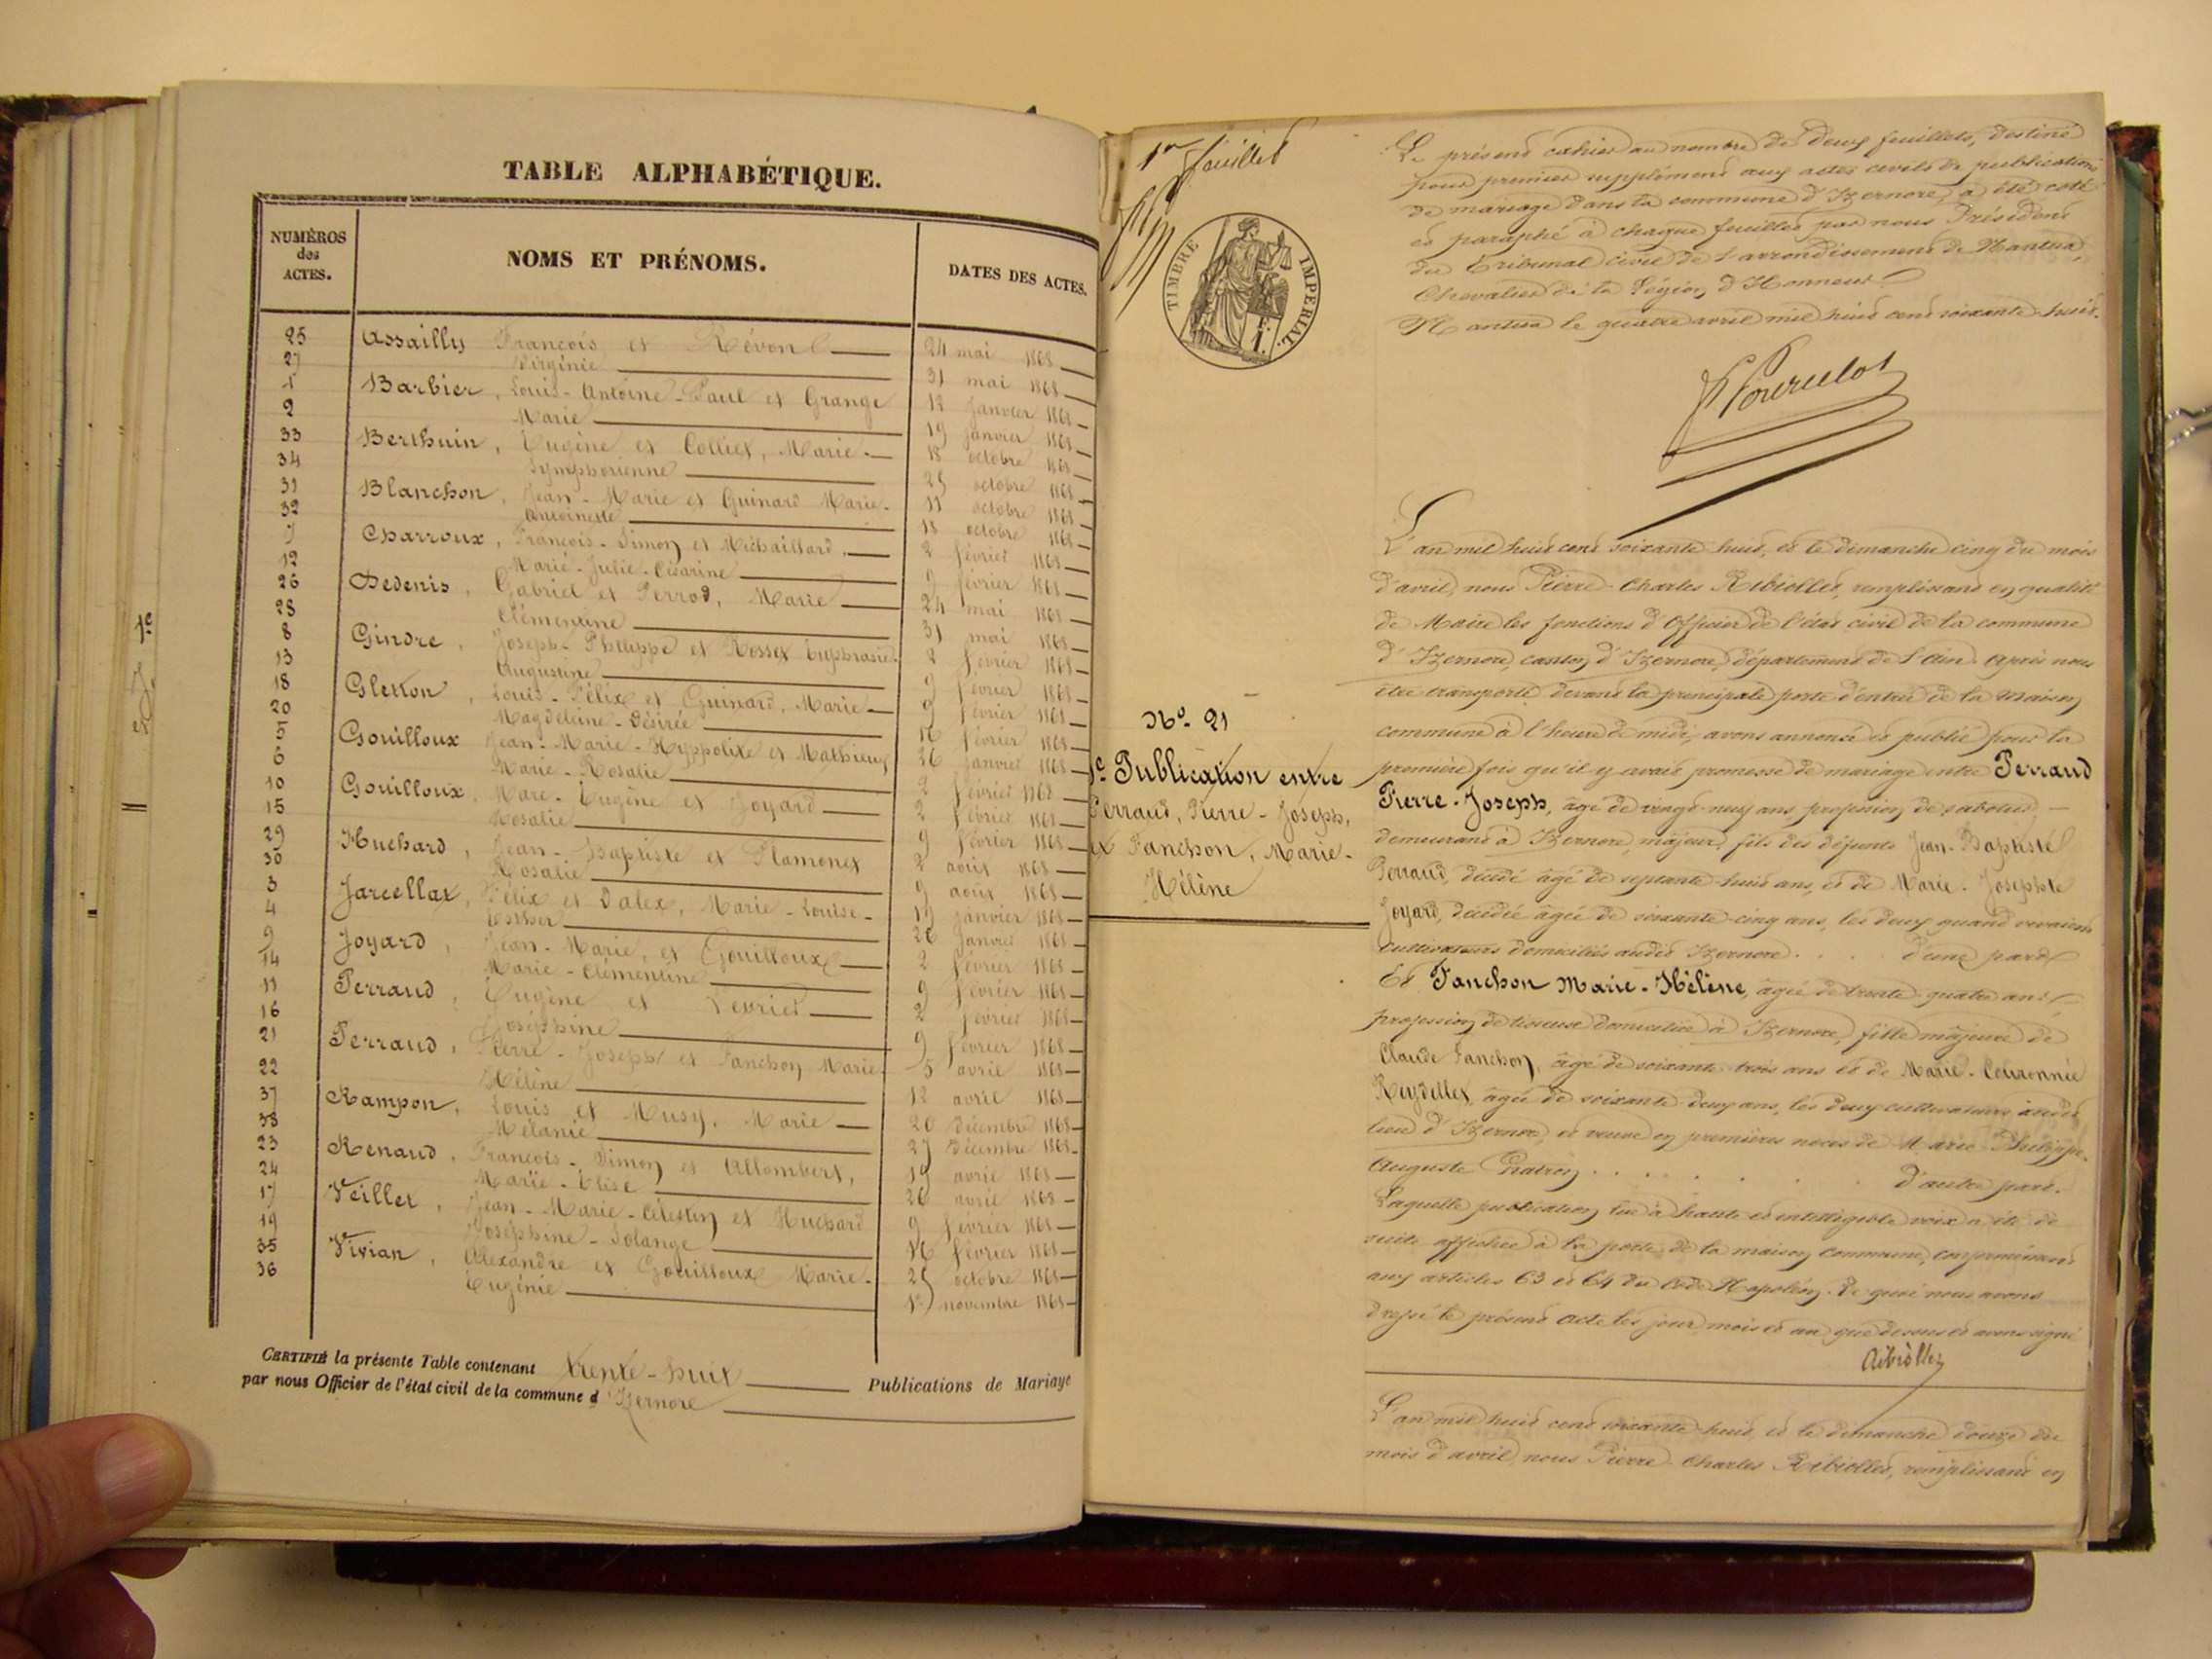 TABLE ALPHABÉTIQUE.
NUMÉROS des ACTES.
NOMS ET PRÉNOMS.
DATES DES ACTES.
25 Assailly François et Révon 24 mai 1868
27 Virginie 31 mai 1868
1 Barbier, Louis-Antoine-Paul et Grange 12 janvier 1868
2 Marie 19 janvier 1868
33 Berthuin, Eugène et Colliex, Marie- 18 octobre 1868
34 Symphorienne 25 octobre 1868
31 Blanchon, Jean-Marie et Guinard Marie- 11 octobre 1868
32 Antoinette 18 octobre 1868
7 Charroux, François-Simon et Michaillard, 2 février 1868
12 Marie-Julie-Césarine 9 février 1868
26 Dedenis, Gabriel et Perrod, Marie 24 mai 1868
28 Clémentine 31 mai 1868
8 Gindre, Joseph-Philippe et Rosset Euphrasie- 2 février 1868
13 Augustine 9 février 1868
18 Gletton, Louis-Félix et Guinard, Marie- 9 février 1868
20 Magdeleine-Désirée 16 février 1868
5 Gouilloux Jean-Marie-Hyppolite et Mathieux 26 janvier 1868
6 Marie-Rosalie 2 février 1868
10 Gouilloux, Marc-Eugène et Joyard 2 février 1868
15 Rosalie 9 février 1868
29 Huchard, Jean-Baptiste et Flamenet 2 août 1868
30 Rosalie 9 août 1868
3 Jarcellat, Félix et Dalex, Marie-Louise- 19 janvier 1868
4 Esther 26 janvier 1868
9 Joyard, Jean-Marie, et Gouilloux 2 février 1868
14 Marie-Clémentine 9 février 1868
11 Perraud, Eugène et Levrier 2 février 1868
16 Joséphine 9 février 1868
21 Perraud, Pierre-Joseph et Fanchon Marie- 5 avril 1868
22 Hélène 12 avril 1868
37 Rampon, Louis et Musy, Marie 20 décembre 1868
38 Mélanie 27 décembre 1868
23 Renaud, François-Simon et Allombert, 19 avril 1868
24 Marie-Elise 26 avril 1868
17 Veillet, Jean-Marie-Célestin et Huchard 9 février 1868
19 Joséphine-Solange 16 février 1868
35 Vivian, Alexandre et Gouilloux Marie- 25 octobre 1868
36 Eugénie 1er novembre 1868
CERTIFIÉ la présente Table contenant trente-huit Publications de Mariage
par nous Officier de l'état civil de la commune d'Izernore
1er feuillet
TIMBRE IMPÉRIAL.
1 F.
Le présent cahier au nombre de deux feuillets, destiné
pour premier supplément aux actes civils de publications
de mariage dans la commune d'Izernore, a été coté
et paraphé à chaque feuillet par nous Président
du Tribunal civil de l'arrondissement de Nantua,
Chevalier de la Légion d'Honneur.
Nantua le quatre avril mil huit cent soixante-huit.
L'an mil huit cent soixante-huit, et le dimanche cinq du mois
d'avril, nous Pierre-Charles Ribiollet, remplissant en qualité
de Maire les fonctions d'Officier de l'état civil de la commune
d'Izernore, canton d'Izernore, département de l'Ain. Après nous
être transporté devant la principale porte d'entrée de la maison
commune à l'heure de midi, avons annoncé et publié pour la
première fois qu'il y avait promesse de mariage entre Perraud
Pierre-Joseph, âgé de vingt-neuf ans, profession de sabotier,
demeurant à Izernore, majeur, fils des défunts Jean-Baptiste
Perraud, décédé âgé de septante-huit ans, et de Marie-Josephte
Joyard, décédée âgée de soixante-cinq ans, les deux quand vivaient
cultivateurs domiciliés audit Izernore. . . . d'une part
Et Fanchon Marie-Hélène, âgée de trente-quatre ans
profession de tisseuse domiciliée à Izernore, fille majeure de
Claude Fanchon, âgé de soixante-trois ans et de Marie-Couronnée
Reydellet, âgée de soixante-deux ans, les deux cultivateurs audit
lieu d'Izernore, et veuve en premières noces de Marie-Philippe-
Auguste . . . . . . d'autre part.
Laquelle publication lue à haute et intelligible voix a été de
suite affichée à la porte de la maison commune, conformément
aux articles 63 et 64 du Code Napoléon. De quoi nous avons
dressé le présent acte les jour mois et an que dessus et avons signé
Ribiollet
L'an mil huit cent soixante-huit, et le dimanche douze du
mois d'avril, nous Pierre-Charles Ribiollet, remplissant en
No. 21
1e Publication entre
Perraud, Pierre-Joseph,
et Fanchon, Marie-
Hélène